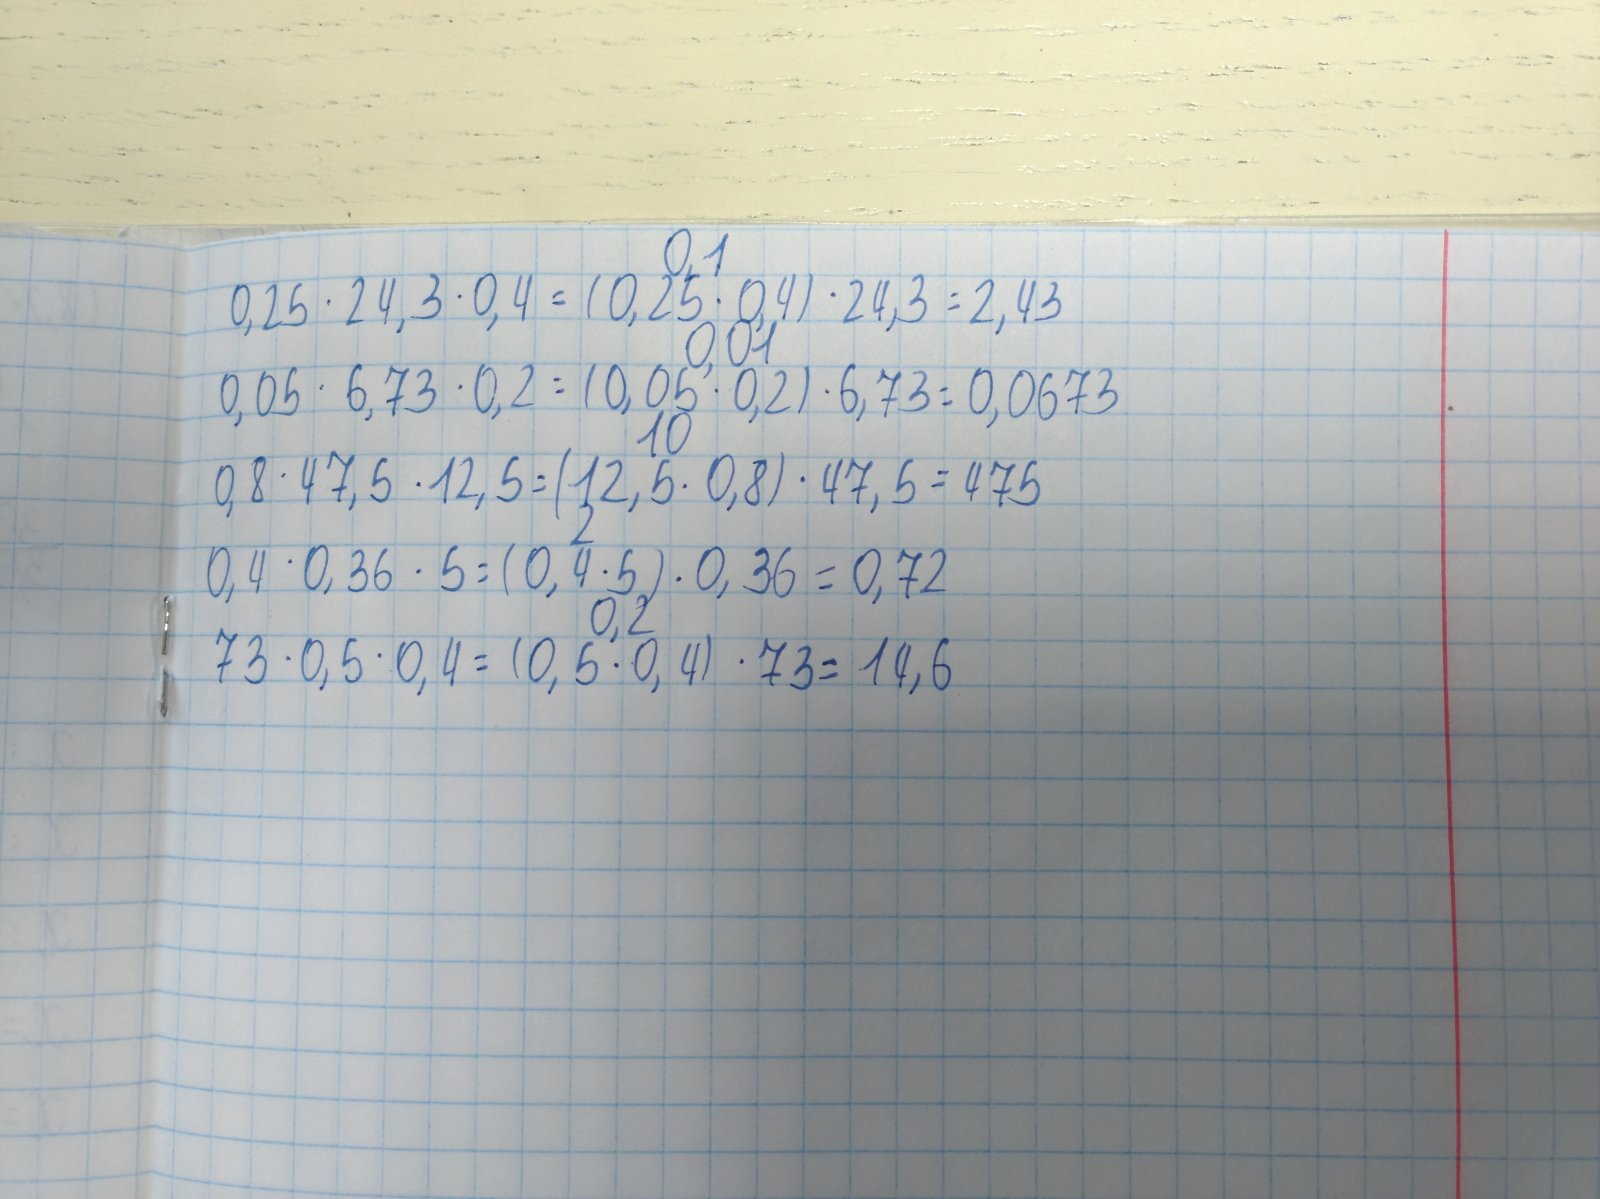 0,1
0,25 · 24,3 · 0,4 = (0,25 · 0,4) · 24,3 = 2,43
0,01
0,05 · 6,73 · 0,2 = (0,05 · 0,2) · 6,73 = 0,0673
10
0,8 · 47,5 · 12,5 = (12,5 · 0,8) · 47,5 = 475
2
0,4 · 0,36 · 5 = (0,4 · 5) · 0,36 = 0,72
0,2
73 · 0,5 · 0,4 = (0,5 · 0,4) · 73 = 14,6